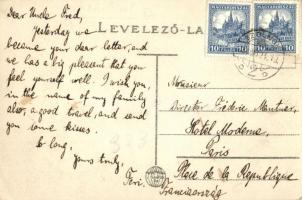 LEVELEZŐ-LA
MAGYARORSZÁG MAGYARORSZÁG
10 10 10
Dear Uncle Fred,
Yesterday we
became your dear letter, and
we has a big plesent that you
feel yourself well. I wish you,
in the name of my family
also, a good travel, and send
you some kisses.
So long,
yours truly,
Feri.
Monsieur
Director Frederic Mautner
Hotel Moderne,
Paris
Place de la Republique
Franciaország